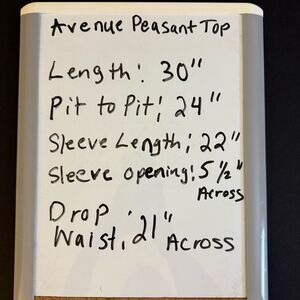 Avenue Peasant Top
Length: 30"
Pit to Pit: 24"
Sleeve Length: 22"
Sleeve Opening: 5 1/2"
Across
Drop
Waist: 21" Across